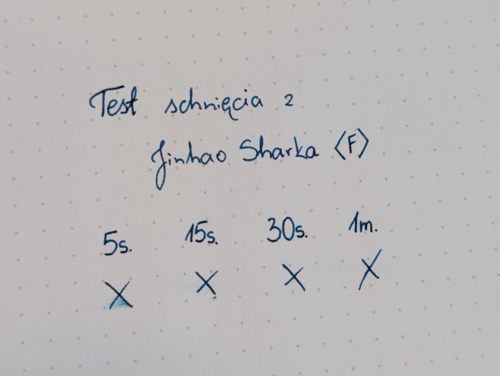 Test schnięcia z
Jinhao Sharka <F>
5s. 15s. 30s. 1m.
X X X X